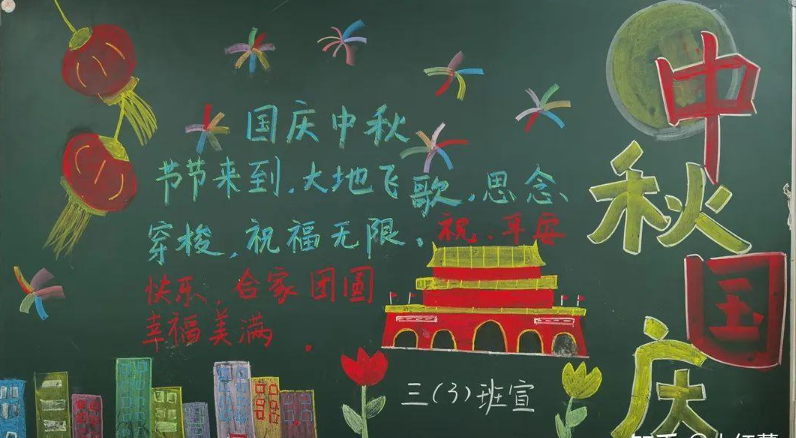 中秋
国庆
国庆中秋
节节来到,大地飞歌,思念、
穿梭,祝福无限。祝,平安
快乐,合家团圆
幸福美满。
三(3)班宣